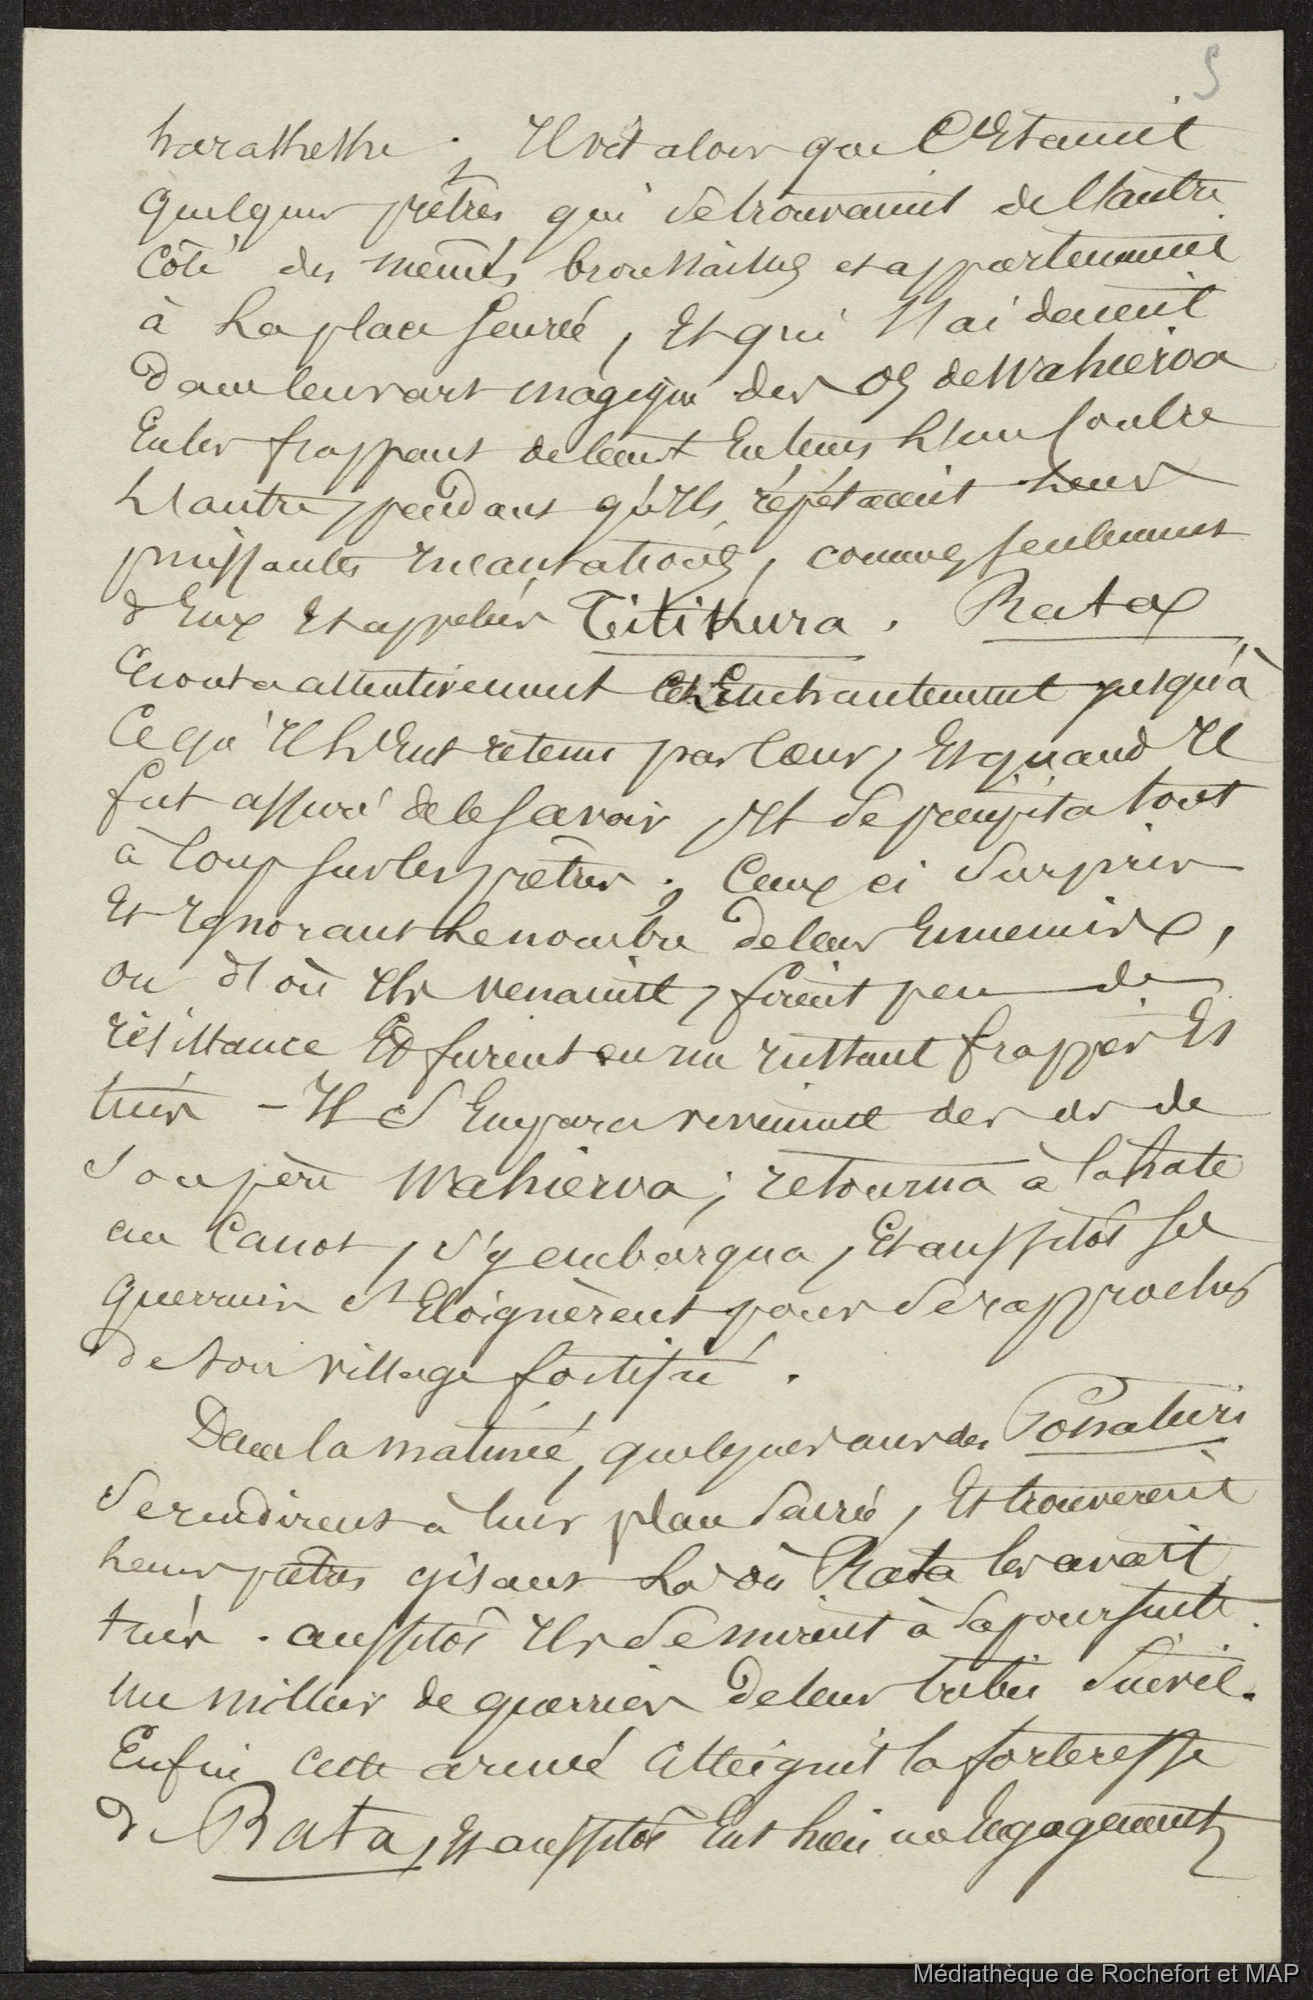 5
harakheke ; Il vit alors que c'etaient
quelques prêtres qui se trouvaient de l'autre
côté des mêmes broussailles et appartenaient
à la place sacrée, et qui s'aidaient
dans leur art magique des os de Wahieroa
en les frappant de temps en temps l'un contre
l'autre, pendant qu'ils répétaient leurs
puissantes incantations, connues seulement
d'eux et appelées Titikura. Rata
écouta attentivement cet enchantement jusqu'à
ce qu'il l'eut retenu par cœur, et quand il
fut assuré de le savoir, il se précipita tout
à coup sur les prêtres ; Ceux ci surpris
et ignorant le nombre de leurs ennemis,
ou d'où ils venaient, firent peu de
résistance et furent en un instant frappés et
tués – Il s'empara vivement des os de
son père Wahieroa ; retourna à la hate
au canot, s'y embarqua, et aussitôt ses
guerriers s'éloignèrent pour se rapprocher
de son village fortifié.
Dans la matinée, quelques uns des Ponaturi
se rendirent à leur place sacrée, et trouvèrent
leurs prêtres gisant là où Rata les avait
tués. aussitôt ils se mirent à sa poursuite.
un millier de guerriers de leur tribu suivit.
Enfin cette armée atteignit la forteresse
de Rata, et aussitôt eut lieu un engagement
Médiathèque de Rochefort et MAP